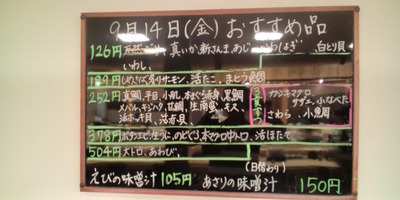 9月14日(金)おすすめ品
126円 真いか、新さんま、あじ 白とり貝
いわし、
189円 しめさば、炙りサーモン、活たこ、まとう鯛
252円 真鯛、平目、小肌、本まぐろ赤身、黒鯛
メバル、キジハタ、甘鯛、生南蛮、モズ、
活ホッキ貝、
カジキマグロ
サザエ、小なべた
さわら、小魚周
378円 ボタンエビ、生うに、のどぐろ、本マグロ中トロ、活ほたて
504円 大トロ、あわび、
(日替わり)
えびの味噌汁 105円 あさりの味噌汁 150円